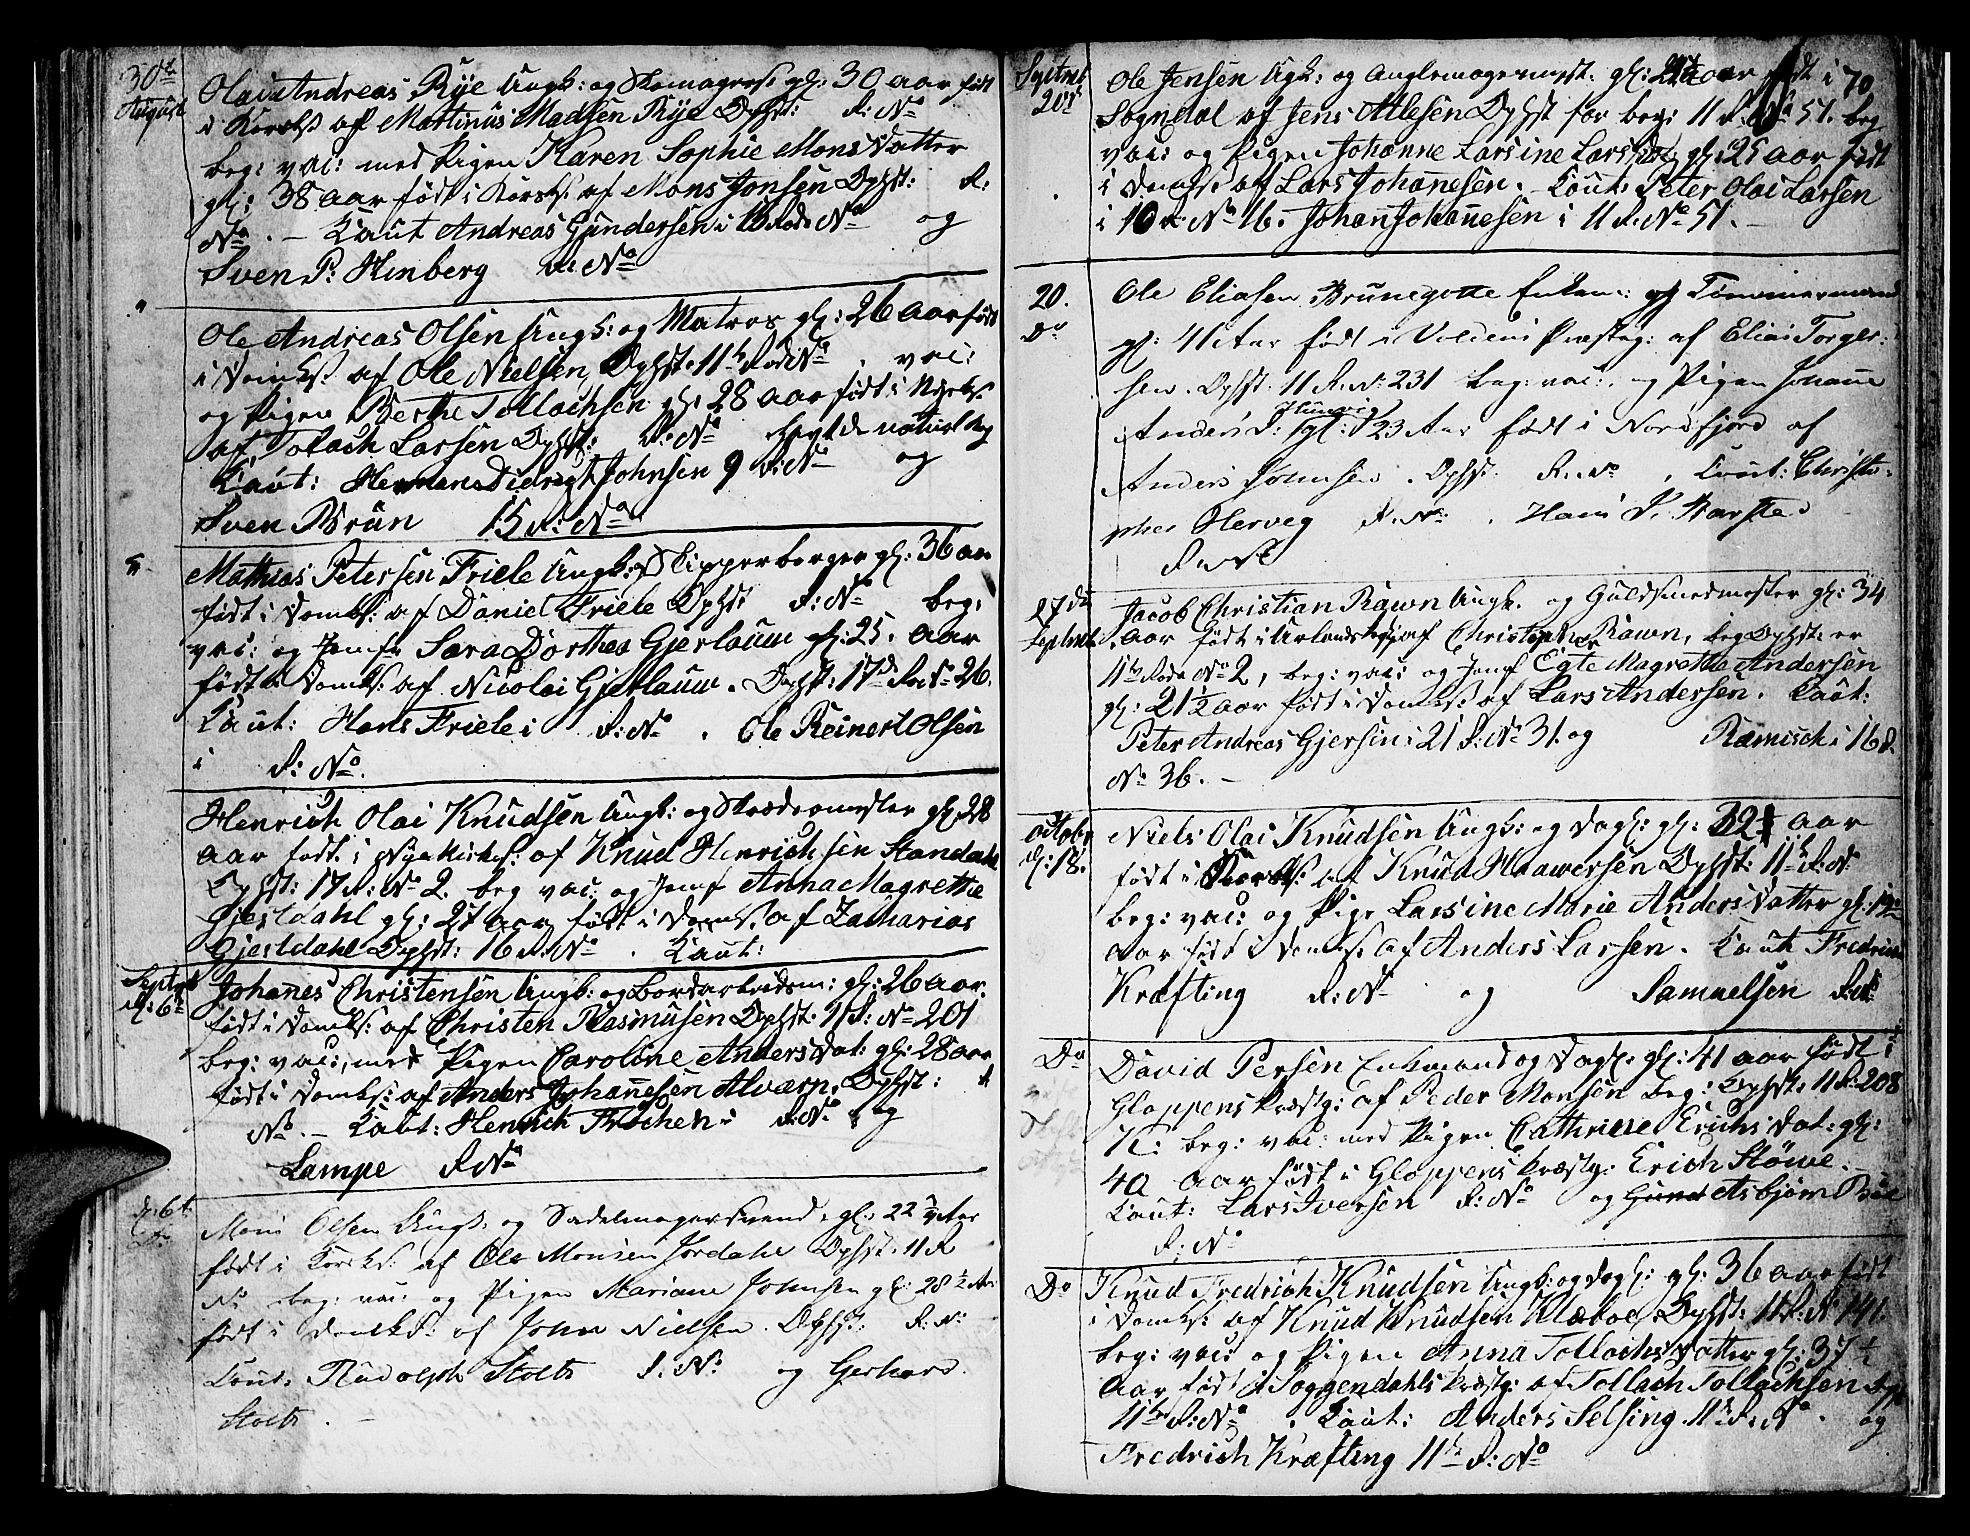 30te
August
Olai Andreas Rÿe Ungk: og Skomagers: gl: 30 aar födt
i Korsk: af Martinus Madsen Rÿe Ophst: R: No
beg: vac: med Pigen Karen Sophie Mons Datter
gl: 38 aar födt i Korsk: af Mons Jonsen Ophst: R:
No . – Caut Andreas Gundersen i 13 Rode No og
Sven P: Hinberg R: No
Ole Andreas Olsen Ungk: og Matros gl: 26 aar födt
i Domk: af Ole Nielsen, Ophst: 11te Rode No . vac:
og Pigen Berthe Tollachsen gl: 28 aar födt i Nÿek:
af Tollach Larsen Ophst: R: No
Caut: Hermans Diedrigt Johnsen 9 R: No og
Sven Brun 15 R: No
Mathias Petersen Friele Ungk: og Skipperborger gl: 36 aar
födt i Domk: af Daniel Friele Ophst R: No beg:
vac: og Jomfr Sara Dorthea Gjerlauw gl: 25. aar
födt i Domk: af Nicolai Gjerlauw. Ophst: 17de R: No 26.
Caut: Hans Friele i R: No . Ole Reinert Olsen
i R: No.
Henrich Olai Knudsen Ungk: og Skrædermester gl: 28
aar födt i Nÿe Kirkes: af Knud Henrichsen Standahl
Ophst: 17 R: No 2. beg vac: og Jomf Anna Magrethe
Gjesldahl gl: 27 aar födt i Domk: af Zacharias
Gjesldahl Ophst: 16 R: No . Caut:
Septbr
d: 6te
Johannes Christensen Ungk: og Bordarbeidsm: gl: 26 aar.
födt i Domk: af Christen Rasmusen Ophst: 11 R: No 201
beg: vac:, med Pigen Caroline Anders Dat: gl: 28 aar
födt i Domk: af Anders Johannesen Alværn. Ophst: R
No. – Caut: Henrich Fröchen i R: No . og
Lampe R No
d: 6t.
Do
Mons Olsen Ungk: og Sadelmagersvend, gl: 22 1/2 Aar
födt i Korsk: af Ole Monsen Jordahl Ophst: 11 R
No beg: vac: og Pigen Mariane Johnsen gl: 28 1/2 Aar
födt i Domk: af John Nielsen. Ophst: R: No:
Caut: Rudolph Stolts R: No: og Gerhard
Stolts . –
Septbr
20d
Ole Jensen Ugk: og gl: aar födt i 70
Sogndal af Jens Atlesen Ophst for beg: 11 R: No 51. beg
vac: og Pigen Johanne Larsine Lars Dat, gl: 25 aar födt
i Domk: af Lars Johannesen. Caut: Peter Olai Larsen
i 10 R: No 16. Johan Johannesen i 11 R: No 51. –
20.
Do
Ole Eliasen Brunegotte Enkem: og Tömmermand
gl: 41 Aar födt i Voldens Præsteg: af Elias Torger:
sen. Ophst: 11 R. No: 231 beg: vac:, og Pigen Johanne
Anders D: gl: 23 Aar födt i Nordfjord af
Anders Johnsen. Ophst: R: No , Caut: Christo-
pher Herveg R: No: . Hans J. Harsted
R: No
27de
Septembr
Jacob Christian Rawn Ungk. og Guldsmedmester gl: 34
aar födt i Urlands af Christopher Rawn, beg Ophst: er
11te Rode No 2, beg: vac: og Jomf Egte Magrethe Andersen
gl: 21 1/2 aar födt i Domk: af Lars Andersen. Caut:
Peter Andreas Gjersin i 21 R: No 31. og Ramisch i 16 R.
No 36. –
October
d: 18.
Niels Olai Knudsen Ungk: og Dagl: gl: 32 aar
födt i Korsk: af Knud Haawersen Ophst: 11te R: No
beg: vac: og Pige Larsine Marie Anders Datter gl: 19
aar födt i Domk: af Anders Larsen. Caut: Fredrich
Kræfting R: No og Samuelsen R: No
Do
David Persen Enkmand og Dagl: gl: 41 aar födt i
Gloppens Præstg: af Peder Monsen beg: Ophst: 11 R: 208
N: beg: vac: med Pigen Cathrine Erichs Dat: gl:
40 aar födt i Gloppens Præstg: Erich Stöwe. –
Caut: Lars Iversen R: No og Asbjörn
R: No
Do
Knud Fredrich Knudsen Ungk: og Dagl: gl: 36 aar födt
i Domk: af Knud Knudsen Klæboe. Ophst: 11 R: No 141.
beg: vac: og Pigen Anna Tollachs Datter gl: 37 1/2
aar födt i Soggendahls Præstg: af Tollach Tollachsen
11te R: No . Caut: Anders Selsing 11te R: No . og
Fredrich Kræfting 11te R: No